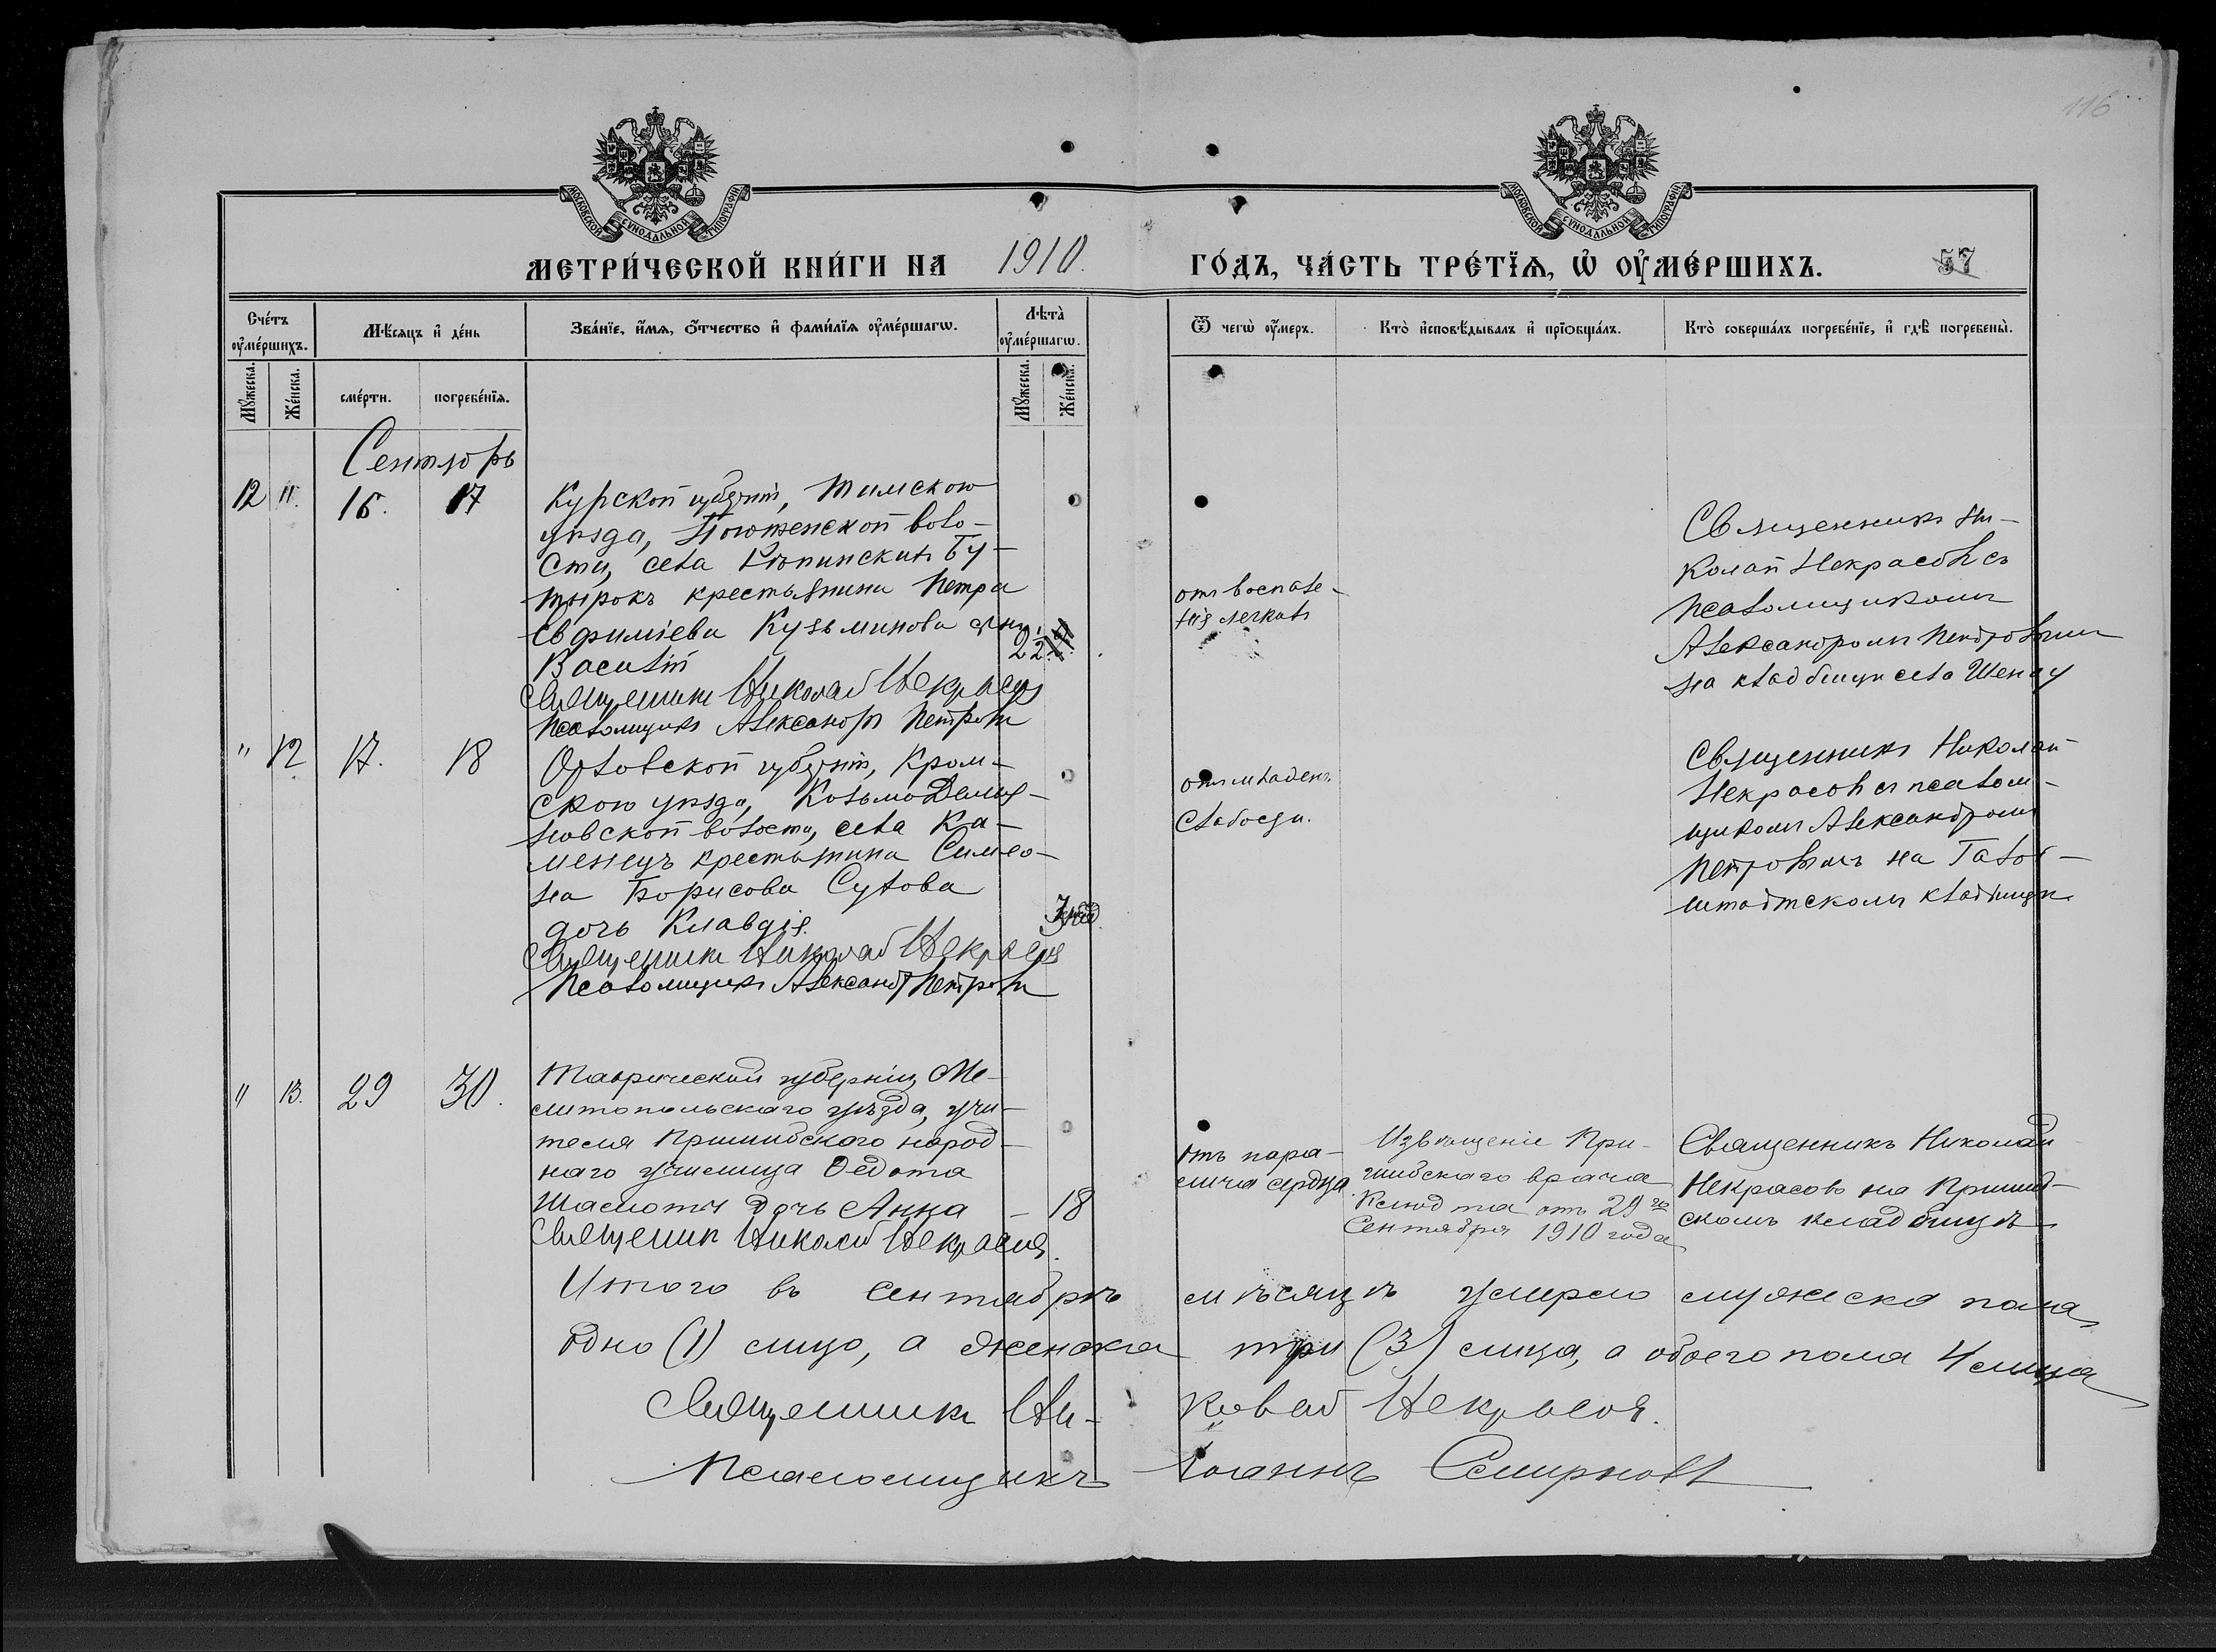 116
МОСКОВСКОЙ СѴНОДАЛЬНОЙ ТИПОГРАФІИ
МОСКОВСКОЙ СѴНОДАЛЬНОЙ ТИПОГРАФІИ
МЕТРИ́ЧЕСКОЙ КНИ́ГИ НА 1910. ГО́ДЪ, ЧА́СТЬ ТРЕ́ТЇѦ, Ѡ҆ ОУ҆МЕ́РШИХЪ. 57
Сче́тъ оу҆ме́ршихъ.
Мѣ́сяцъ и҆ де́нь
Зва́нїе, и҆́мѧ, ѻ҆́тчество и҆ фами́лїѧ оу҆ме́ршагѡ.
Лѣ́та оу҆ме́ршагѡ.
Ѿ чегѡ̀ оу҆́меръ.
Кто̀ и҆сповѣ́дывалъ и҆ прїѡбща́лъ.
Кто̀ соверша́лъ погребе́нїе, и҆ гдѣ̀ погребены̀.
Мꙋ́жеска.
Же́нска.
сме́рти.
погребе́нїѧ.
Мꙋ́жеска.
Же́нска.
Сентябрь
12 11. 16. 17
Курской губерніи, Тимскаго
уѣзда, волос-
сти, села Бу-
тырокъ крестьянина Петра
Евфиміева Кузьминова сынъ
Василій
22
Священникъ Николай Некрасовъ
Псаломщикъ Александръ Петровъ
отъ воспале-
нія легкихъ
Священникъ Ни-
колай Некрасовъ съ
псаломщикомъ
Александромъ Петровымъ
на кладбищѣ села
" 12 17. 18
Орловской губерніи, Кром-
скаго уѣзда, Козьмодемья-
новской волости, села Ка-
менецъ крестьянина Симео-
на Борисова Сутова
дочь Клавдія.
Священникъ Николай Некрасовъ
Псаломщикъ Александръ Петровъ
отъ младенч.
слабости.
Священникъ Николай
Некрасовъ съ псалом-
щикомъ Александромъ
Петровымъ на Галб-
штадтскомъ кладбищѣ.
" 13. 29 30.
Таврической губерніи, Ме-
литопольскаго уѣзда, учи-
теля Пришибскаго народ-
наго училища Ѳедота
Шаслоты дочь Анна – 18
Священникъ Николай Некрасовъ.
отъ пара-
лича сердца.
Извѣщеніе При-
шибскаго врача
отъ 29го
Сентября 1910 года
Священникъ Николай
Некрасовъ на Пришиб-
скомъ кладбищѣ
Итого въ Сентябрѣ мѣсяцѣ умерло мужеска пола
одно (1) лицо, а женска три (3) лица, а обоего пола 4 лица
Священникъ Николай Некрасовъ.
Псаломщикъ Іоаннъ Смирновъ